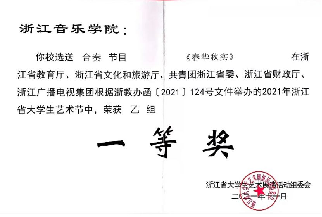 浙江音乐学院：
你校选送 合奏 节目 《春华秋实》 在浙
江省教育厅、浙江省文化和旅游厅、共青团浙江省委、浙江省财政厅、
浙江广播电视集团根据浙教办函〔2021〕124号文件举办的2021年浙江
省大学生艺术节中，荣获 乙 组
一等奖
浙江省大学生艺术节活动组委会
二〇二一年十一月